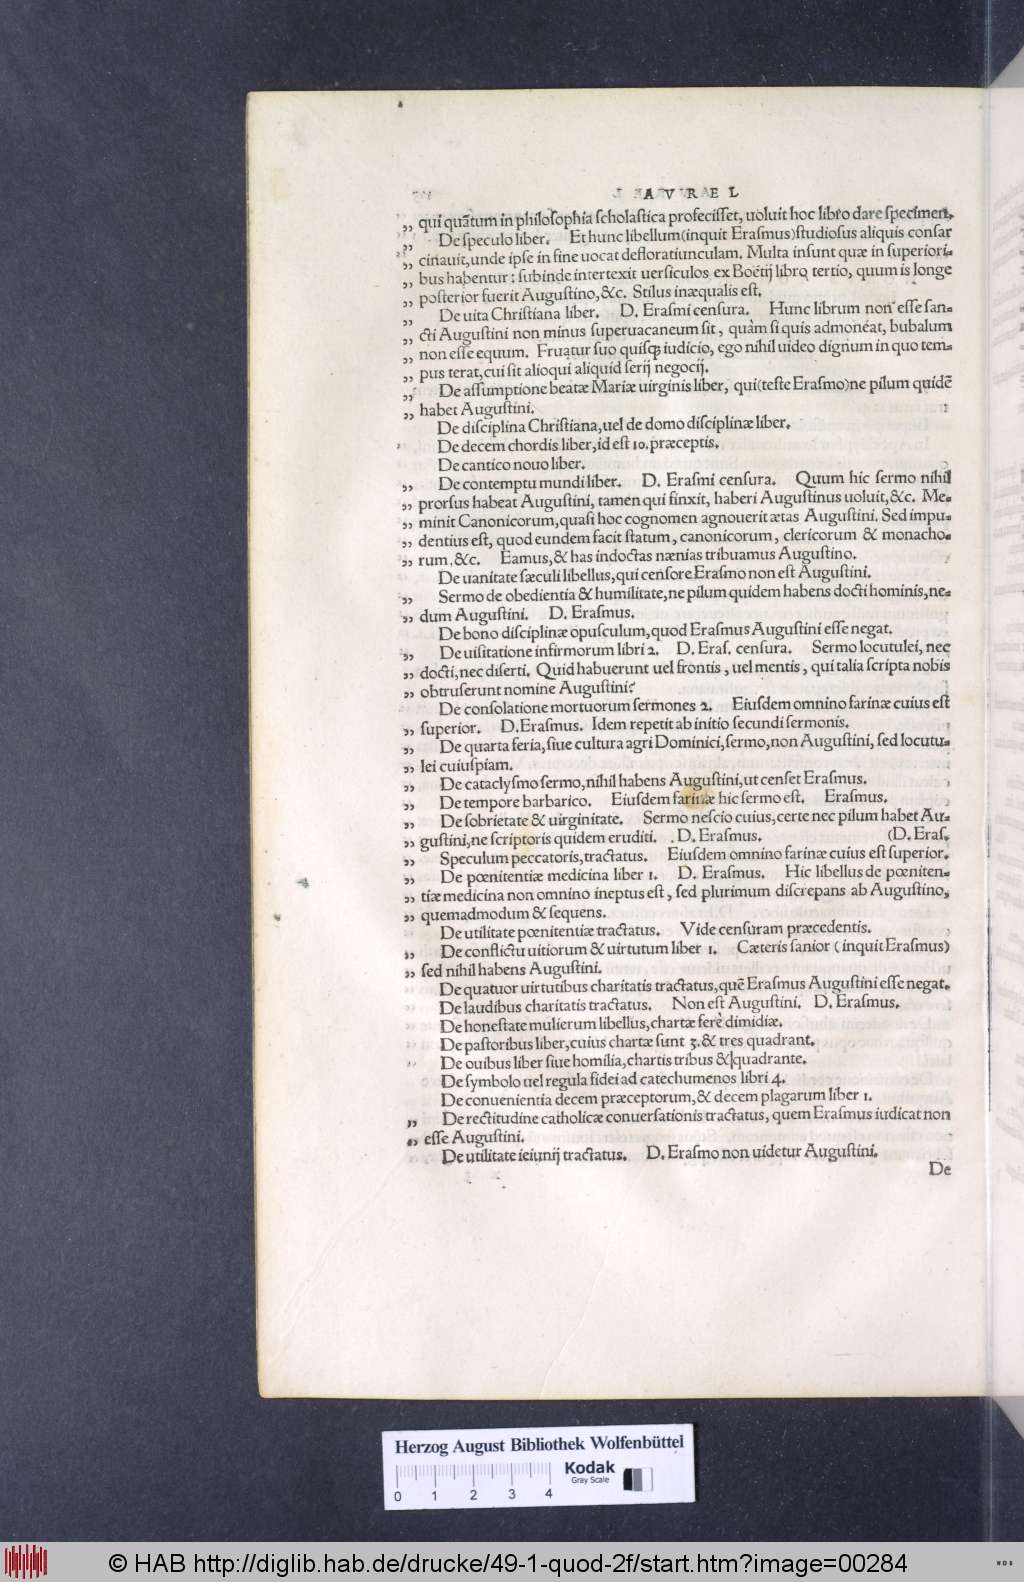 A V R E L
„ qui quãtum in philosophia scholastica profecisset, uoluit hoc libro dare specimen.
„ De speculo liber. Et hunc libellum(inquit Erasmus)studiosus aliquis consar
„ cinauit,unde ipse in fine uocat defloratiunculam. Multa insunt quæ in superiori-
„ bus habentur: subinde intertexit uersiculos ex Boëtij libro tertio, quum is longe
„ posterior fuerit Augustino,&c. Stilus inæqualis est.
„ De uita Christiana liber. D. Erasmi censura. Hunc librum non esse san-
„ cti Augustini non minus superuacaneum sit, quàm si quis admoneat, bubalum
„ non esse equum. Fruatur suo quisq; iudicio, ego nihil uideo dignum in quo tem-
„ pus terat,cui sit alioqui aliquid serij negocij.
„ De assumptione beatæ Mariæ uirginis liber, qui(teste Erasmo)ne pilum quidẽ
„ habet Augustini.
De disciplina Christiana,uel de domo disciplinæ liber.
De decem chordis liber,id est 10.præceptis.
De cantico nouo liber.
„ De contemptu mundi liber. D. Erasmi censura. Quum hic sermo nihil
„ prorsus habeat Augustini, tamen qui finxit, haberi Augustinus uoluit,&c. Me-
„ minit Canonicorum,quasi hoc cognomen agnouerit ætas Augustini. Sed impu-
„ dentius est, quod eundem facit statum, canonicorum, clericorum & monacho-
„ rum,&c. Eamus,& has indoctas nænias tribuamus Augustino.
De uanitate sæculi libellus,qui censore Erasmo non est Augustini.
„ Sermo de obedientia & humilitate,ne pilum quidem habens docti hominis,ne-
„ dum Augustini. D. Erasmus.
De bono disciplinæ opusculum,quod Erasmus Augustini esse negat.
„ De uisitatione infirmorum libri 2. D. Eras. censura. Sermo locutulei, nec
„ docti,nec diserti. Quid habuerunt uel frontis, uel mentis, qui talia scripta nobis
„ obtruserunt nomine Augustini?
De consolatione mortuorum sermones 2. Eiusdem omnino farinæ cuius est
„ superior. D.Erasmus. Idem repetit ab initio secundi sermonis.
„ De quarta feria,siue cultura agri Dominici,sermo,non Augustini, sed locutu-
„ lei cuiuspiam.
„ De cataclysmo sermo,nihil habens Augustini,ut censet Erasmus.
„ De tempore barbarico. Eiusdem farinæ hic sermo est. Erasmus.
„ De sobrietate & uirginitate. Sermo nescio cuius,certe nec pilum habet Au-
„ gustini,ne scriptoris quidem eruditi. D. Erasmus. (D. Eras.
„ Speculum peccatoris,tractatus. Eiusdem omnino farinæ cuius est superior.
„ De pœnitentiæ medicina liber 1. D. Erasmus. Hic libellus de pœniten-
„ tiæ medicina non omnino ineptus est, sed plurimum discrepans ab Augustino,
„ quemadmodum & sequens.
De utilitate pœnitentiæ tractatus. Vide censuram præcedentis.
„ De conflictu uitiorum & uirtutum liber 1. Cæteris sanior (inquit Erasmus)
„ sed nihil habens Augustini.
De quatuor uirtutibus charitatis tractatus,quẽ Erasmus Augustini esse negat.
De laudibus charitatis tractatus. Non est Augustini. D. Erasmus.
De honestate mulierum libellus,chartæ ferè dimidiæ.
De pastoribus liber,cuius chartæ sunt 3.& tres quadrant.
De ouibus liber siue homilia,chartis tribus & quadrante.
De symbolo uel regula fidei ad catechumenos libri 4.
De conuenientia decem præceptorum,& decem plagarum liber 1.
„ De rectitudine catholicæ conuersationis tractatus, quem Erasmus iudicat non
„ esse Augustini.
De utilitate ieiunij tractatus. D. Erasmo non uidetur Augustini.
De
Herzog August Bibliothek Wolfenbüttel
Kodak
Gray Scale
0 1 2 3 4
© HAB http://diglib.hab.de/drucke/49-1-quod-2f/start.htm?image=00284